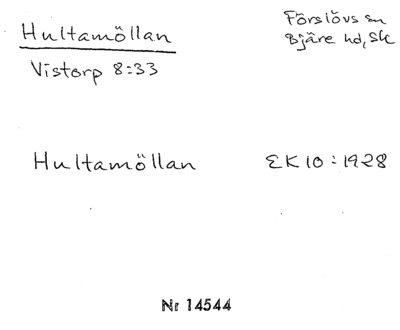 Hultamöllan
Förslövs sn
Bjäre hd, Sk
Vistorp 8:33
Hultamöllan EK10:1928
Nr 14544